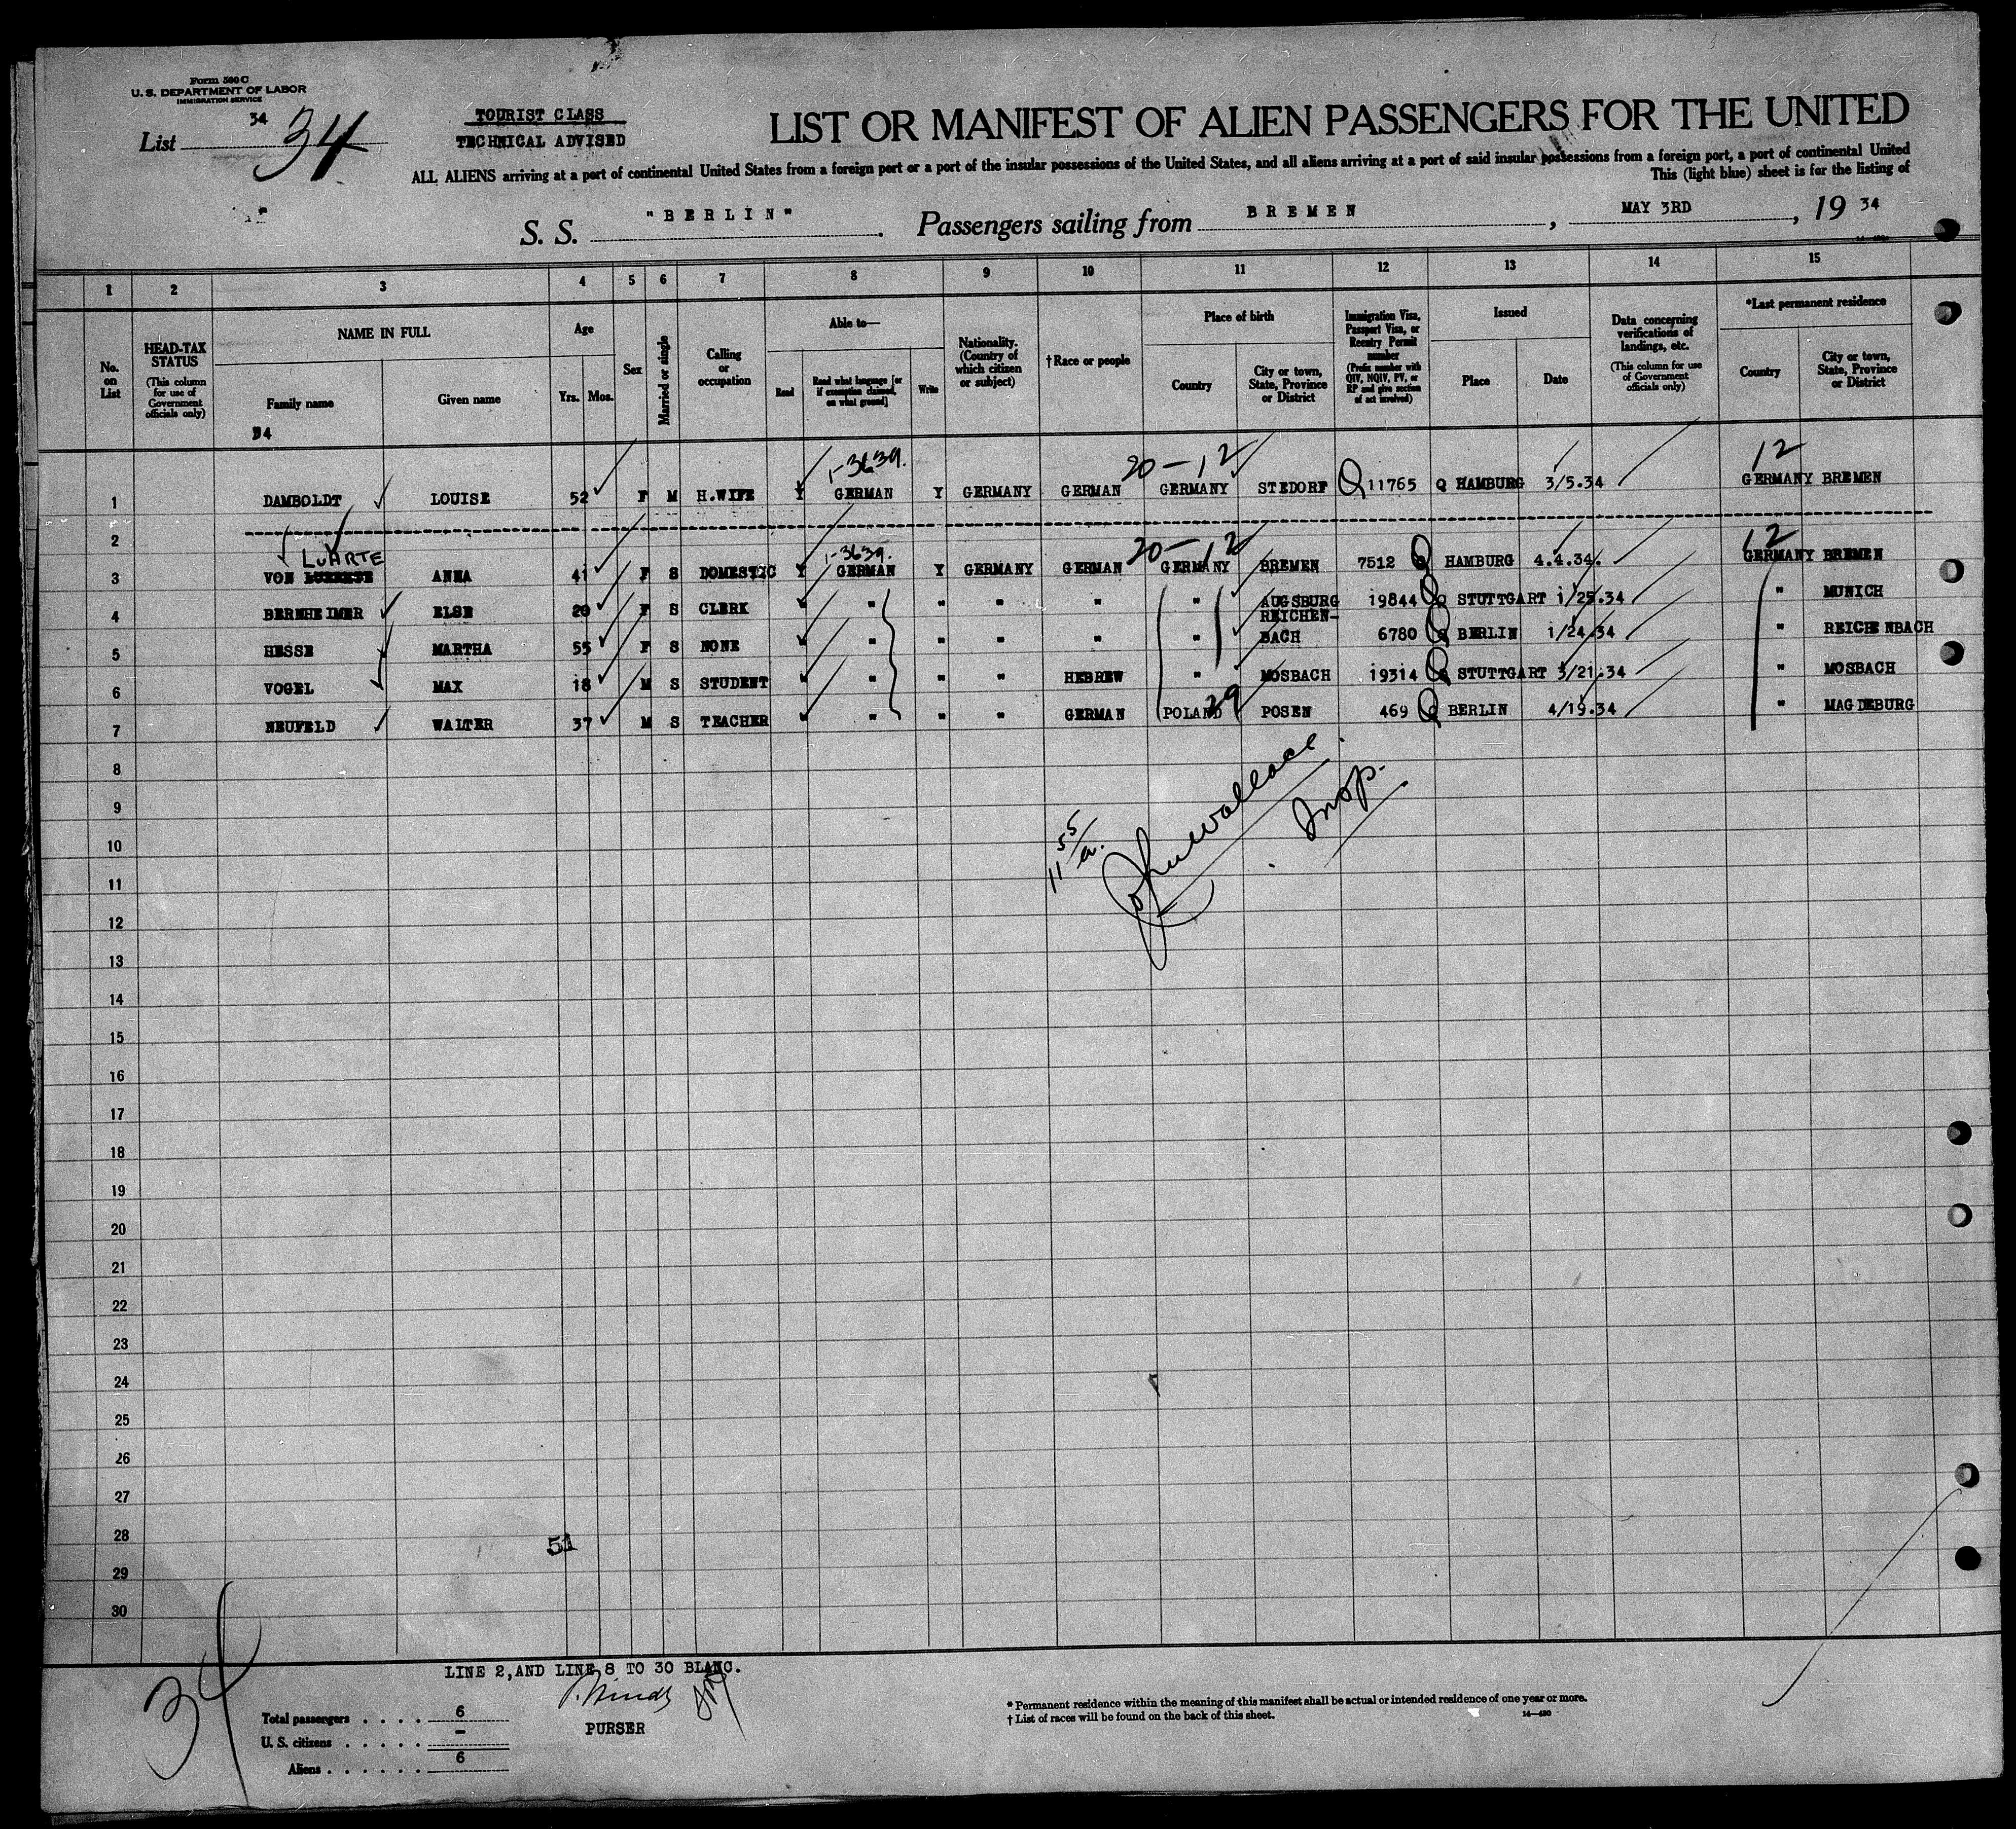 Form 500 C
U. S. DEPARTMENT OF LABOR
IMMIGRATION SERVICE
List 34 34
TOURIST CLASS
TECHNICAL ADVISED
LIST OR MANIFEST OF ALIEN PASSENGERS FOR THE UNITED
ALL ALIENS arriving at a port of continental United States from a foreign port or a port of the insular possessions of the United States, and all aliens arriving at a port of said insular possessions from a foreign port, a port of continental United
This (light blue) sheet is for the listing of
S. S. "BERLIN". Passengers sailing from BREMEN, MAY 3RD, 19 34
1 2 3 4 5 6 7 8 9 10 11 12 13 14 15
No. on List
HEAD-TAX STATUS
(This column for use of Government officials only)
NAME IN FULL
Family name
Given name
Age
Yrs. Mos.
Sex
Married or single
Calling or occupation
Able to—
Read
Read what language [or if exemption claimed, on what ground]
Write
Nationality. (Country of which citizen or subject)
†Race or people
Place of birth
Country
City or town, State, Province or District
Immigration Visa, Passport Visa, or Reentry Permit number
(Prefix number with QIV, NQIV, PV, or RP and give section of act involved)
Issued
Place
Date
Data concerning verifications of landings, etc.
(This column for use of Government officials only)
*Last permanent residence
Country
City or town, State, Province or District
34
1-3639. 20-12 12
1 DAMBOLDT LOUISE 52 F M H.WIFE Y GERMAN Y GERMANY GERMAN GERMANY STEDORF Q 11765 Q HAMBURG 3/5.34 GERMANY BREMEN
2
LUARTE 1-3639. 20-12 12
3 VON ANNA 41 F S DOMESTIC Y GERMAN Y GERMANY GERMAN GERMANY BREMEN 7512 Q HAMBURG 4.4.34. GERMANY BREMEN
4 BERNHEIMER ELSE 20 F S CLERK " " " " " AUGSBURG 19844 Q STUTTGART 1/25.34 " MUNICH
5 HESSE MARTHA 55 F S NONE " " " " " REICHEN-
BACH 6780 Q BERLIN 1/24.34 " REICHENBACH
6 VOGEL MAX 18 M S STUDENT " " " " HEBREW " MOSBACH 19314 Q STUTTGART 3/21.34 " MOSBACH
7 NEUFELD WALTER 37 M S TEACHER " " " " GERMAN POLAND 29 POSEN 469 Q BERLIN 4/19.34 " MAGDEBURG
8
9
10
11 55/a. John Wallace. Insp.
11
12
13
14
15
16
17
18
19
20
21
22
23
24
25
26
27
28
51
29
30
34
LINE 2,AND LINE 8 TO 30 BLANC.
PURSER
Total passengers . . . . 6
U. S. citizens . . . . . –
Aliens . . . . . . 6
* Permanent residence within the meaning of this manifest shall be actual or intended residence of one year or more.
† List of races will be found on the back of this sheet.
14—480